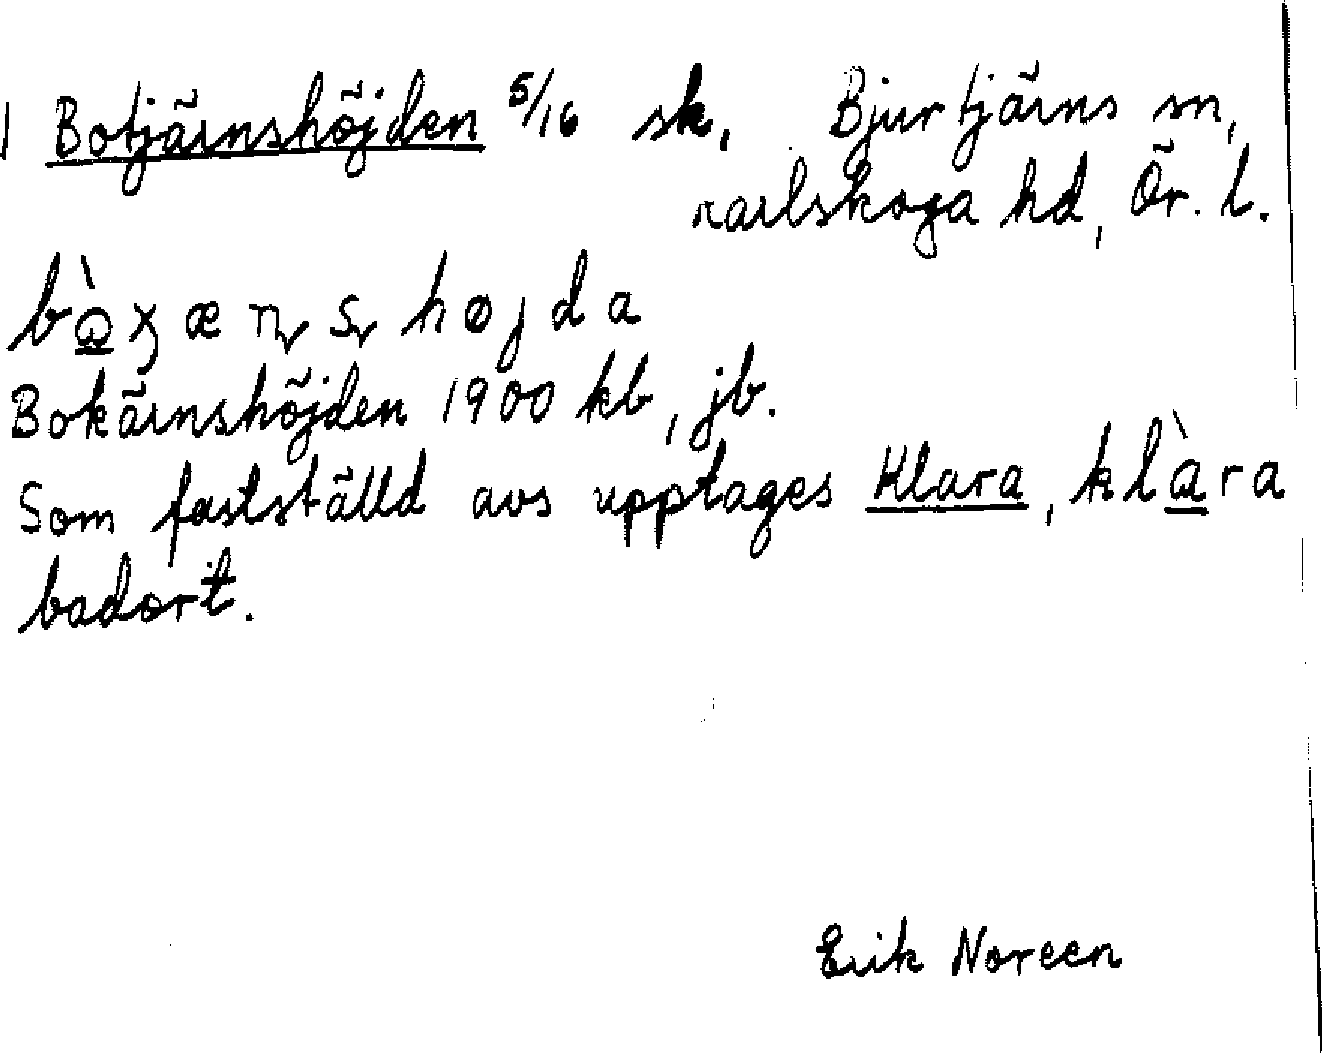 1 Botjärnshöjden 5/16 sk. Bjurtjärns sn,
Karlskoga hd, Ör. l.
Bokärnshöjden 1900 kb, jb.
Som fastställd avs upptages Klara, klàra
badort.
Erik Noreen